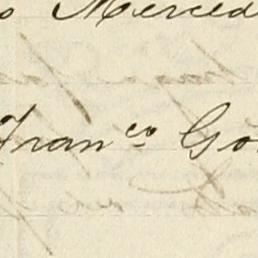 Merced
Franco Go